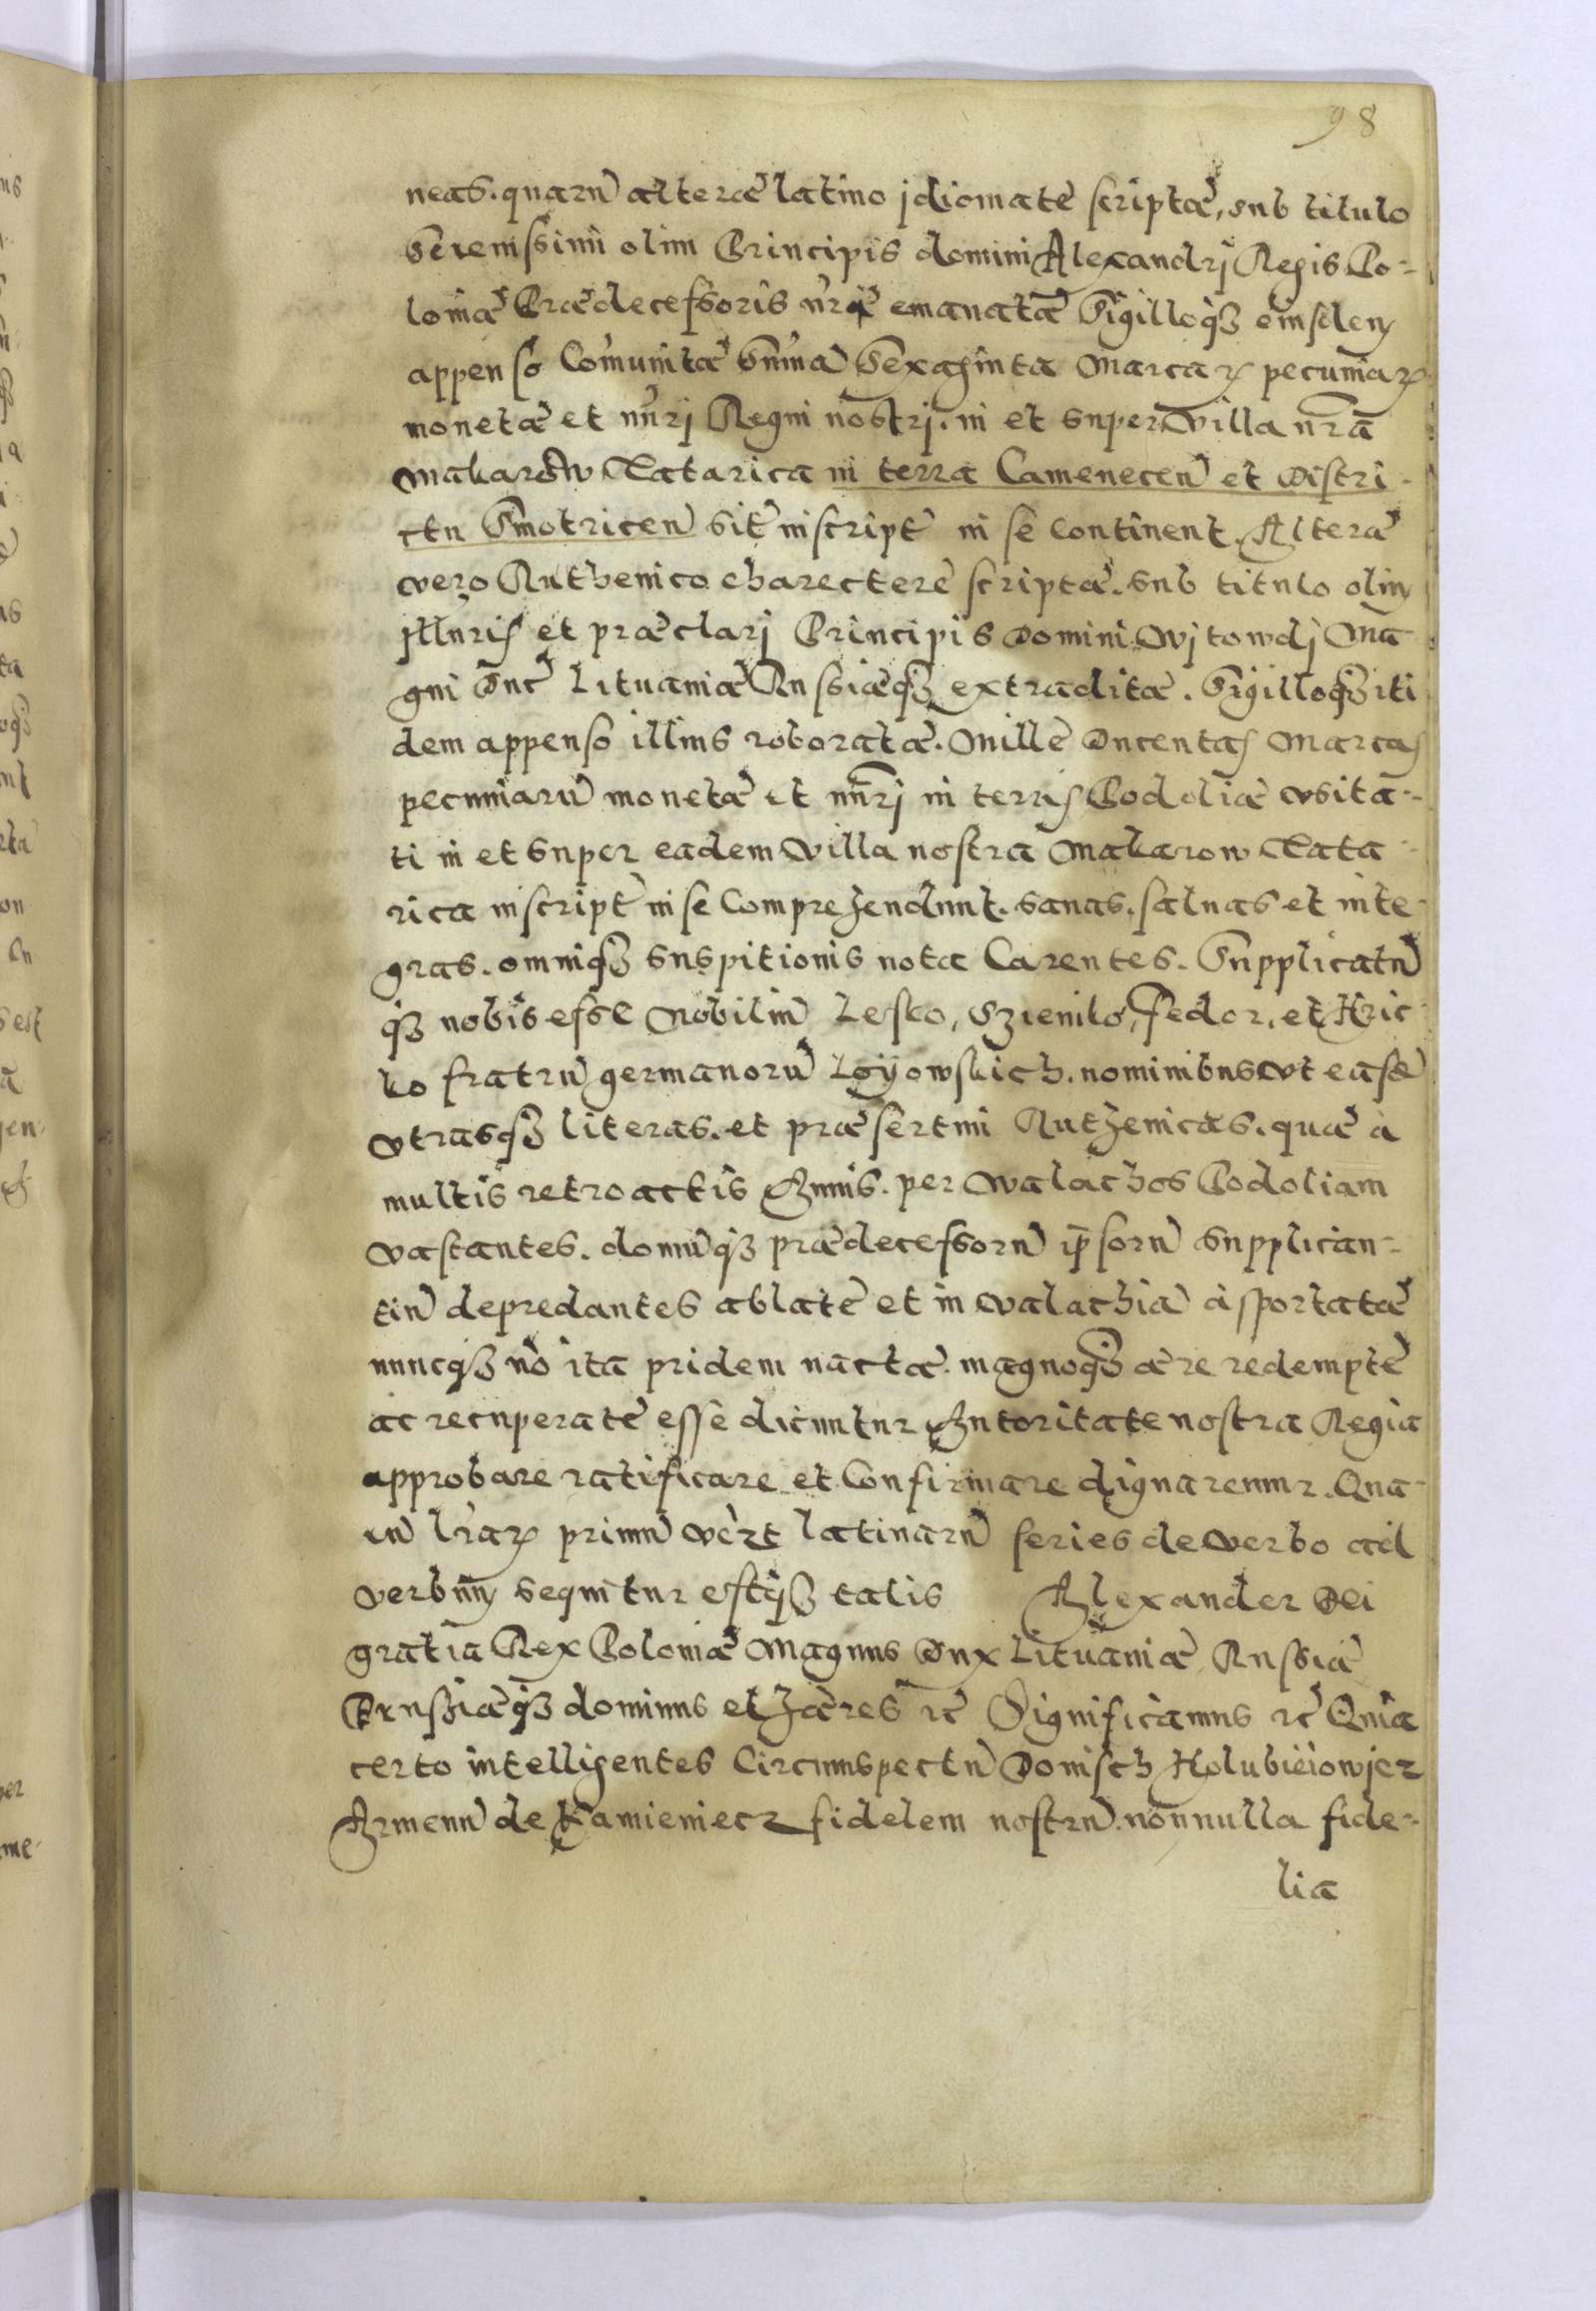 98
neas. quarũ alteræ latino jdiomate scriptæ, sub titulo
Serenissimi olim Principis domini Alexandrj Regis Po-
loniæ Prædecessoris nrĩ emanatæ Sigilloqȝ eiusdem
appenso Comunitæ Sum̃a Sexaginta Marcarꝝ pecuniarꝝ
monetæ et nũrj Regni nostrj. in et super villa nr̃a
Makarow Tatarica in terra Camenecen̄ et Distri-
ctu Smotricen̄ sit inscript̄ in se Continent. Alteræ
vero Ruthenico charectere scriptæ. sub titulo olim
jllũris et præclarj Principis Domini Vitowdj Ma-
gni Duc̄ Lituaniæ Russiæqȝ extraditæ. Sigilloqȝ iti
dem appenso illius roboratæ. Mille Ducentas Marcas
pecuniarũ monetæ et nũrj in terris Podoliæ vsita-
ti in et super eadem Villa nostra Makarow Tata-
rica inscript̄ in se Comprehendunt. sanas. saluas et inte-
gras. omniqȝ suspitionis nota Carentes. Supplicatũ
qȝ nobis esse Nobiliũ Lesko, Szienko, Fedor, et Hric
ko fratrũ germanorũ Loyowskich. nominibus vt easd̄
vtrasqȝ literas. et præsertim Ruthenicas. quæ à
multis retroactis Annis. per Walachos Podoliam
vastantes. domũqȝ prædecessorũ ip̄sorũ supplican-
tiũ depredantes ablatæ et in Valachiã àsportatæ
nuncqȝ nõ ita pridem nactæ. magnoqȝ ære redemptæ
ac recuperatæ esse dicuntur Autoritate nostra Regia
approbare ratificare et Confirmare dignaremur. Qua-
rũ lr̃arꝝ primũ vèrt latinarũ series de verbo ad
verbum sequitur estqȝ talis Alexander Dei
gratia Rex Poloniæ Magnus Dux Lituaniæ Russiæ
Prussiæqȝ dominus et hæres ꝛc̄ Significamus ꝛc̄ Quia
certo intelligentes Circumspectũ Donisch Holubieiowjcz
Armenũ de Kamieniecz fidelem nostrũ. nonnulla fide-
lia